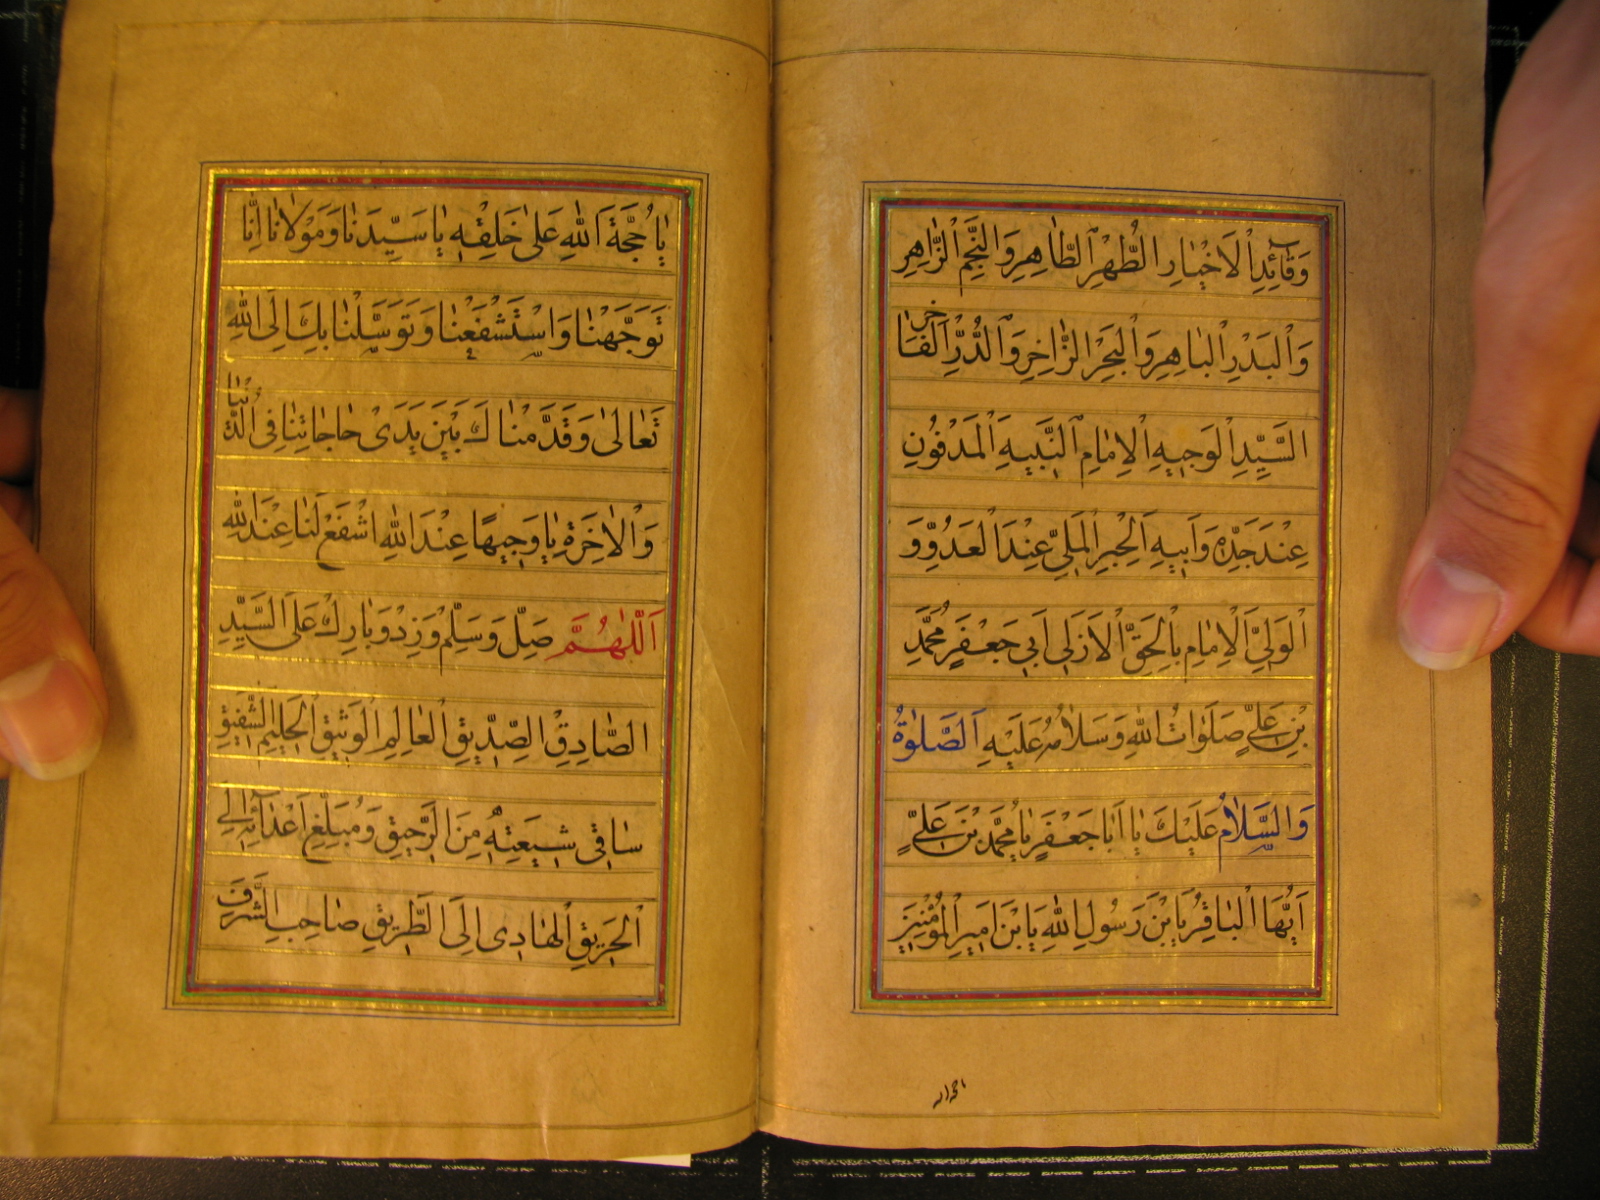 وَقٰآئِدِ الْاَخْيٰارِ الطُّهْرِ الطّٰاهِرِ وَالنَّجْمِ الزّٰاهِرِ
وَالْبَدْرِ الْبٰاهِرِ وَالْبَحْرِ الزّٰاخِرِ وَالدُّرِّ الْفٰاخِرِ
السَّيِّدِ الْوَجِيهِ الْاِمٰامِ النَّبِيهِ الْمَدْفُونِ
عِنْدَ جَدِّهِ وَاَبِيهِ الْحِبْرِ الْمَلِيِّ عِنْدَ الْعَدُوِّ وَ
الْوَلِيِّ الْاِمٰامِ بِالْحَقِّ الْاَزَلِى اَبِى جَعْفَرٍ مُحَمَّدِ
بْنِ عَلِيٍّ صَلَوٰاتُ اللهِ وَسَلٰامُهُ عَلَيْهِ اَلصَّلٰوةُ
وَالسَّلٰامُ عَلَيْكَ يٰا اَبٰا جَعْفَرٍ يٰا مُحَمَّدَ بْنَ عَلِيٍّ
اَيُّهَا الْبٰاقِرُ يَا بْنَ رَسُولِ اللهِ يَا بْنَ اَمِيرِ الْمُؤْمِنِينَ
يٰا حُجَّةَ اللهِ عَلىٰ خَلْقِهِ يٰا سَيِّدَنٰا وَمَوْلٰانٰا اِنّٰا
تَوَجَّهْنٰا وَاسْتَشْفَعْنٰا وَتَوَسَّلْنٰا بِكَ اِلَى اللهِ
تَعٰالىٰ وَقَدَّمْنٰاكَ بَيْنَ يَدَىْ حٰاجٰاتِنٰا فِى الدُّنْيٰا
وَالْاٰخِرَةِ يٰا وَجِيهًا عِنْدَ اللهِ اشْفَعْ لَنٰا عِنْدَ اللهِ
اَللّٰهُمَّ صَلِّ وَسَلِّمْ وَزِدْ وَبٰارِكْ عَلَى السَّيِّدِ
الصّٰادِقِ الصِّدِّيقِ الْعٰالِمِ الْوَثِيقِ الْحَلِيمِ الشَّفِيقِ
سٰاقِى شِيعَتِهِ مِنَ الرَّحِيقِ وَمُبَلِّغِ اَعْدٰآئِهِ اِلَى
الْحَرِيقِ الْهٰادِى اِلَى الطَّرِيقِ صٰاحِبِ الشَّرَفِ